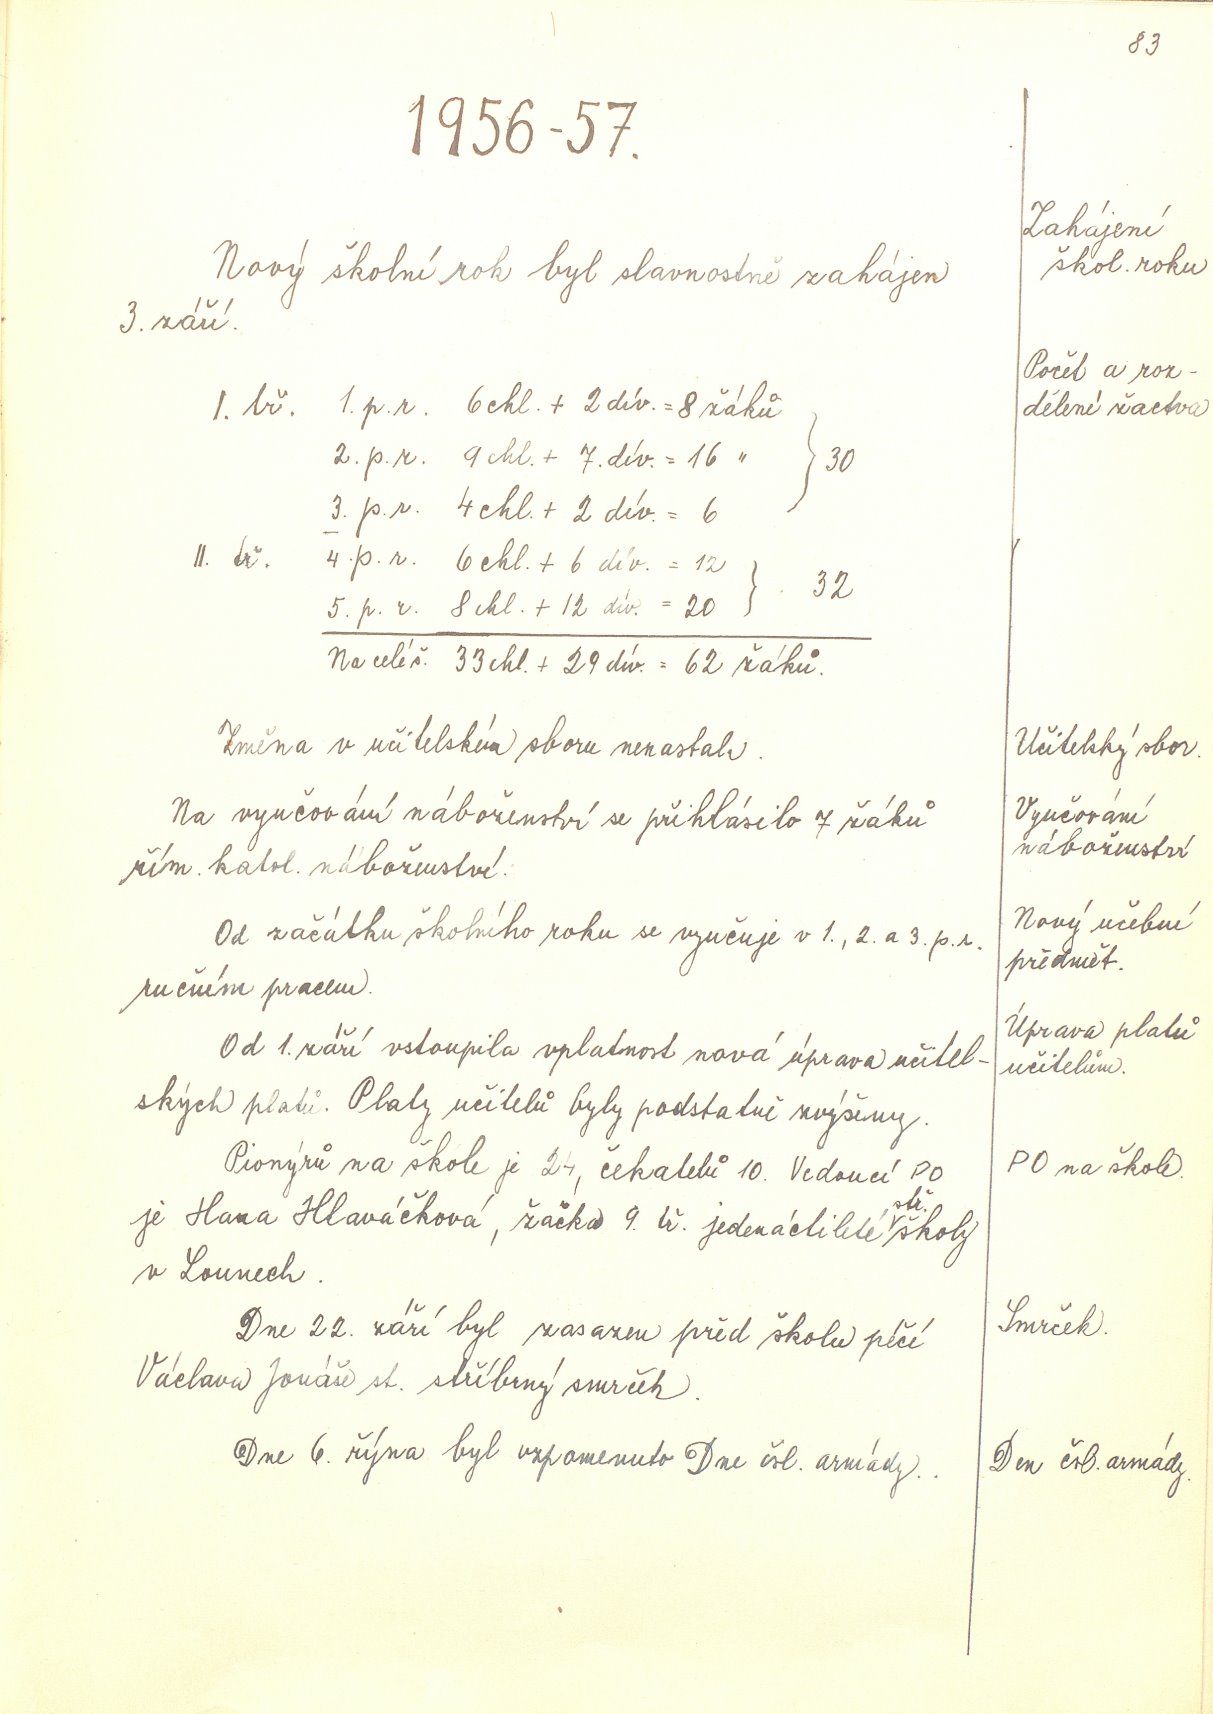 83
1956-57.
Zahájení
škol. roku
Nový školní rok byl slavnostně zahájen
3. září.
Počet a roz-
dělení žactva
I. tř. 1. p. r. 6 chl. + 2 dív. = 8 žáků
2. p. r. 9 chl. + 7. dív. = 16 "
} 30
3. p. r. 4 chl. + 2 dív. = 6
II. tř. 4. p. r. 6 chl. + 6 dív. = 12
} 32
5. p. r. 8 chl. + 12 dív. = 20
Na celé š. 33 chl. + 29 dív. = 62 žáků.
Změna v učitelském sboru nenastala.
Učitelský sbor.
Na vyučování náboženství se přihlásilo 7 žáků
řím. katol. náboženství.
Vyučování
náboženství
Od začátku školního roku se vyučuje v 1., 2. a 3. p. r.
ručním pracem.
Nový učební
předmět.
Od 1. září vstoupila vplatnost nová úprava učitel-
ských platů. Platy učitelů byly podstatně zvýšeny.
Úprava platů
učitelům.
Pionýrů na škole je 24, čekatelů 10. Vedoucí PO
je Hana Hlaváčková, žačka 9. tř. jedenáctileté stř. školy
v Lounech.
PO na škole.
Dne 22. září byl zasazen před školu péčí
Václava Jonáše st. stříbrný smrček.
Smrček.
Dne 6. října byl vzpomenuto Dne čsl. armády.
Den čsl. armády.